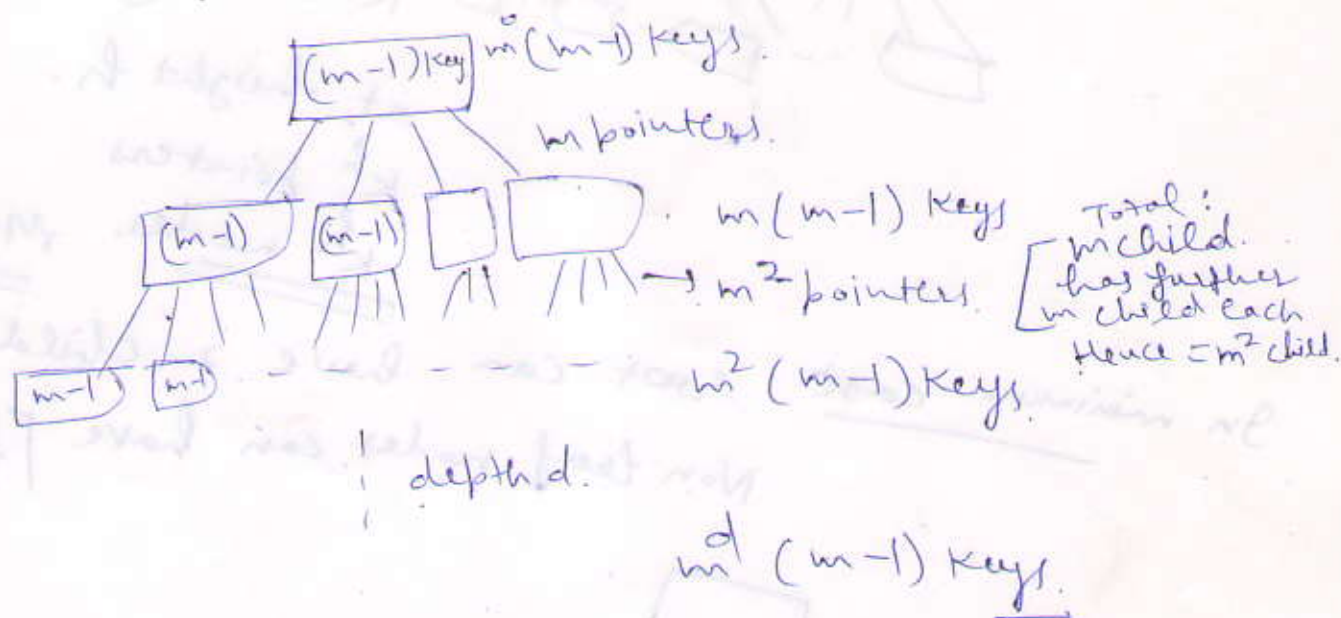 (m-1) Key m⁰(m-1) Keys.
m pointers.
(m-1) (m-1) m(m-1) Keys
→ m² pointers.
Total:
m child.
has further
m child each
Hence = m² child.
m-1 m-1 - - - - - m² (m-1) Keys.
depth d.
m^d (m-1) Keys.